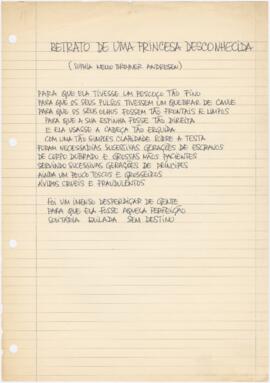 RETRATO DE UMA PRINCESA DESCONHECIDA
(SOPHIA MELLO BREYNER ANDRESEN)
PARA QUE ELA TIVESSE UM PESCOÇO TÃO FINO
PARA QUE OS SEUS PULSOS TIVESSEM UM QUEBRAR DE CAULE
PARA QUE OS SEUS OLHOS FOSSEM TÃO FRONTAIS E LIMPOS
PARA QUE A SUA ESPINHA FOSSE TÃO DIREITA
E ELA USASSE A CABEÇA TÃO ERGUIDA
COM UMA TÃO SIMPLES CLARIDADE SOBRE A TESTA
FORAM NECESSÁRIAS SUCESSIVAS GERAÇÕES DE ESCRAVOS
DE CORPO DOBRADO E GROSSAS MÃOS PACIENTES
SERVINDO SUCESSIVAS GERAÇÕES DE PRÍNCIPES
AINDA UM POUCO TOSCOS E GROSSEIROS
ÁVIDOS CRUÉIS E FRAUDULENTOS
FOI UM IMENSO DESPERDIÇAR DE GENTE
PARA QUE ELA FOSSE AQUELA PERFEIÇÃO
SOLITÁRIA EXILADA SEM DESTINO